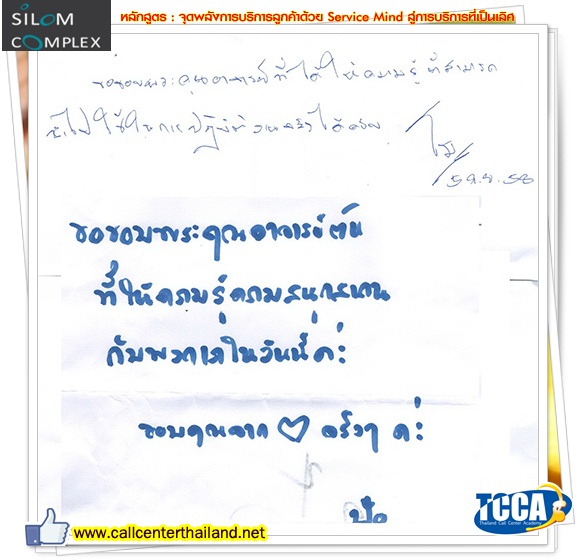 SILOM
COMPLEX
หลักสูตร : จุดพลังการบริการลูกค้าด้วย Service Mind สู่การบริการที่เป็นเลิศ
ขอขอบพระคุณอาจารย์ที่ได้ให้ความรู้ ที่สามารถ
นำไปใช้ในการปฏิบัติงานจริงได้ค่ะ
ขอขอบพระคุณอาจารย์ต้น
ที่ให้ความรู้ความสนุกสนาน
กับพวกเราในวันนี้ค่ะ
ขอบคุณจาก ♡ จริงๆ ค่ะ
TCCA
Thailand Call Center Academy
www.callcenterthailand.net